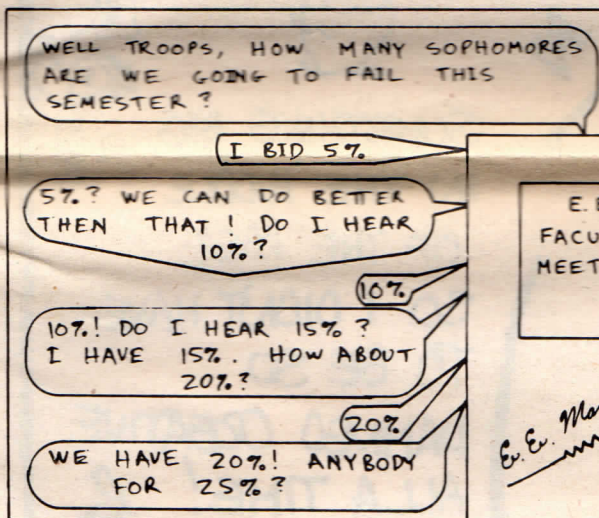 WELL TROOPS, HOW MANY SOPHOMORES
ARE WE GOING TO FAIL THIS
SEMESTER?
I BID 5%
5%? WE CAN DO BETTER
THEN THAT! DO I HEAR
10%?
10%
10%! DO I HEAR 15%?
I HAVE 15%. HOW ABOUT
20%?
20%
WE HAVE 20%! ANYBODY
FOR 25%?
E.
FACU
MEET
E.E. Ma